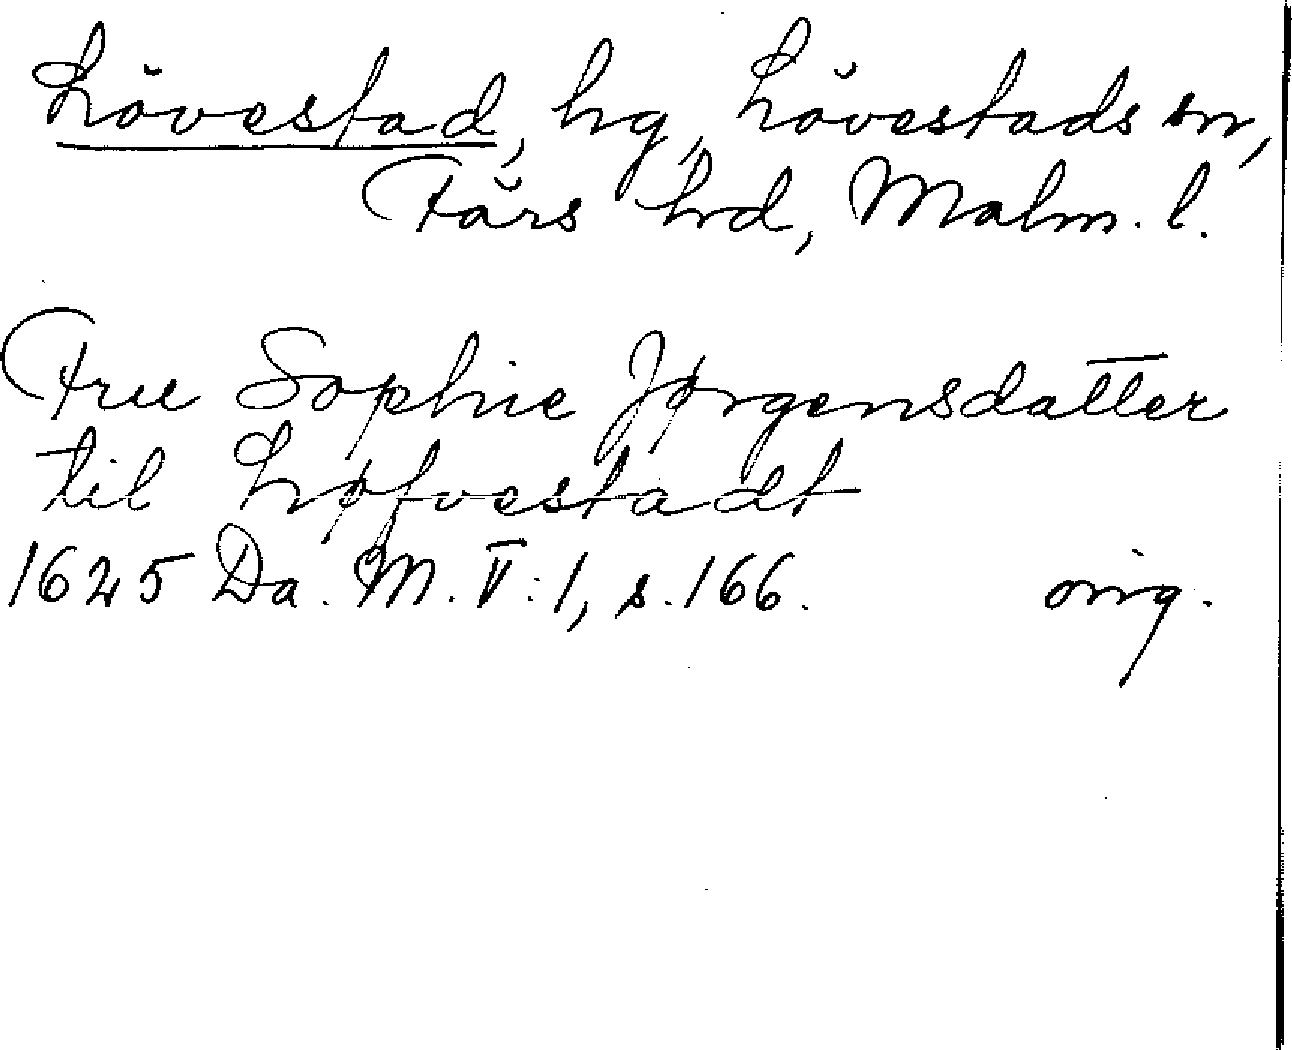 Lövestad, hg, Lövestads sn,
Färs hd, Malm. l.
Frue Sophie Jørgensdatter
til Løfvestadt
1625 Da. M. V:1, s. 166. orig.